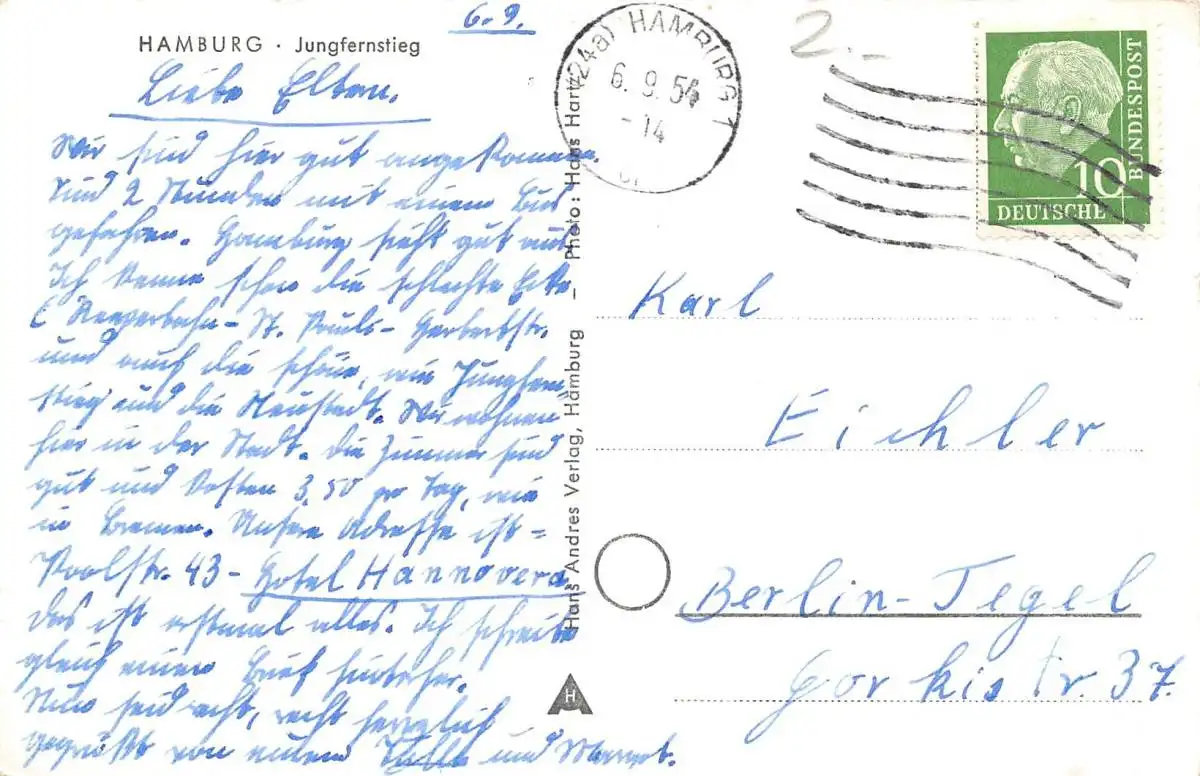 6.9.
HAMBURG · Jungfernstieg
Liebe Eltern,
Wir sind hier gut angekommen.
Sind 2 Stunden mit einem Bus
gefahren. Hamburg sieht gut aus.
Ich kenne schon die schlechte Ecke
( Reeperbahn - St. Pauli - Herbertstr.
und auch die schöne, wie Jungfern
stieg und die Neustadt. Wir wohnen
hier in der Stadt. Die Zimmer sind
gut und kosten 3,50 pro Tag, wie
in Bremen. Unsere Adresse ist =
Poolstr. 43 - Hotel Hannovera
Das ist erstmal alles. Ich schreibe
gleich einen Brief hinterher.
Nun seid recht, recht herzlich
gegrüßt von eurem und
Hans Andres Verlag, Hamburg – Photo: Hans Hartz
H
(24a) HAMBURG 1
6.9.54
-14
2.-
DEUTSCHE
BUNDESPOST
10
Karl
Eichler
Berlin-Tegel
Gorkistr. 37.